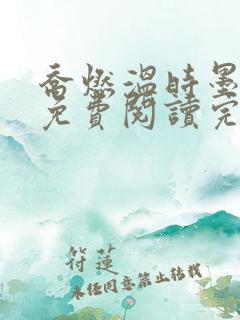 喬燃溫時墨
免費閱讀完
符蓮
未经同意禁止转载